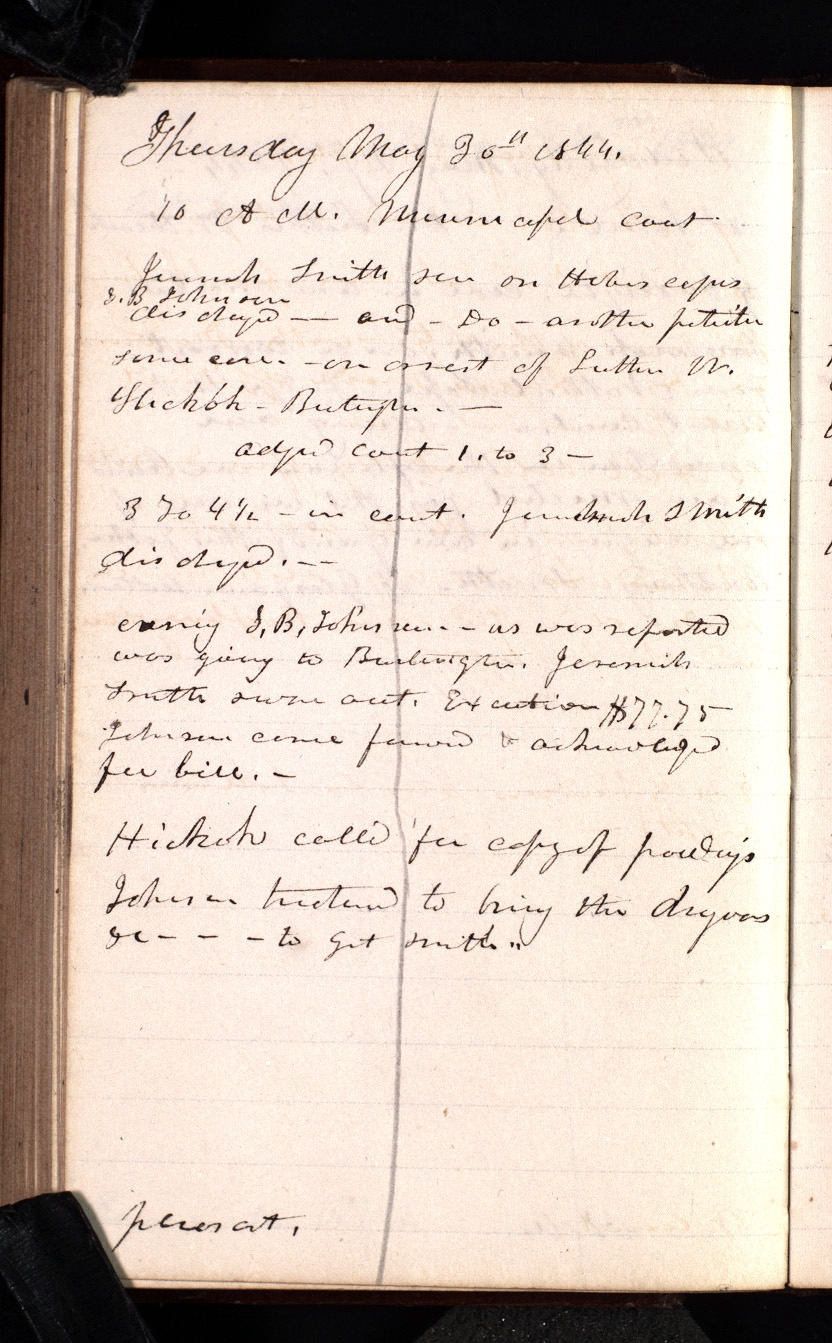 Thursday May 30th 1844.
10 A M. Municipal court
Jeremiah Smith sen on Habes corpus
T. B Johnson
discharged — and - Do - another petition
same case. - on arrest of Luther W.
Hickok - Burlington. —
adjd court 1. to 3 —
3 To 4½ - in court. Jeremiah Smith
discharged. —
evening T, B, Johnson. - as was reported
was going to Burlington. Jeremiah
Smith swore out. Execution $77.75
Johnson came forward & acknowledged
fee bill. -
Hickok called for copy of proceedings
Johnson threatened to bring the dragoons
&c - - - to get Smith..
pleasant.